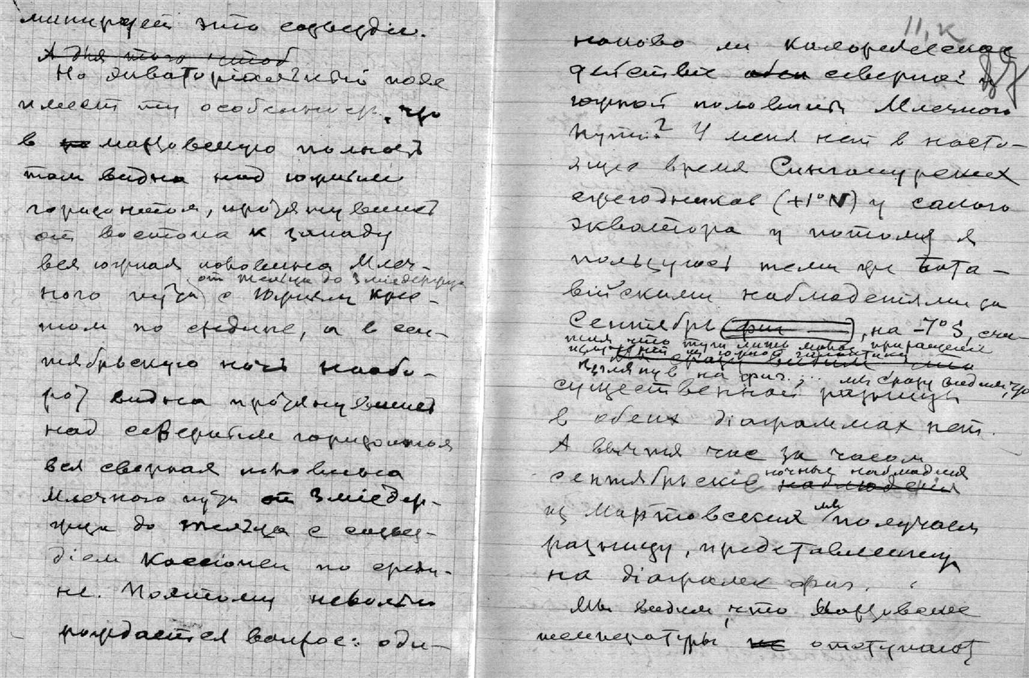 минующей это созвездие.
А для того чтоб
Но экваторіальный пояс
имеет ту особенность, что
в мартовскую полночь
там видна над южным
горизонтом, протянувшись
от востока к западу
вся южная половина Млеч-
ного пути от тельца до Зміедержца
с Южным Крес-
том по средине, а в сен-
тябрьскую ночь наобо-
рот видна протянувшись
над северным горизонтом
вся северная половина
Млечного пути от Зміедер-
жца до тельца с созвез-
діем Кассіопеи по среди-
не. Поэтому невольно
рождается вопрос: оди-
11,к
наково ли калорическое
действие северной и
южной половины Млечного
пути? У меня нет в насто-
ящее время Сингапурских
ежегодников (+1° N) у самого
экватора и потому я
пользуюсь теми же Бата-
війскими наблюдениями за
Сентябрь, на -7° S, счи-
тая что тут лишь малое приращение
взглянув на фиг. мы сразу видим, что
существенной разницы
в обеих діаграммах нет.
А вычтя час за часом
сентябрьскіе ночные наблюдения
наблюденія
из Мартовских мы получаем
разницу, представленную
на діаграмме фиг.
Мы видим, что
температуры не отступают